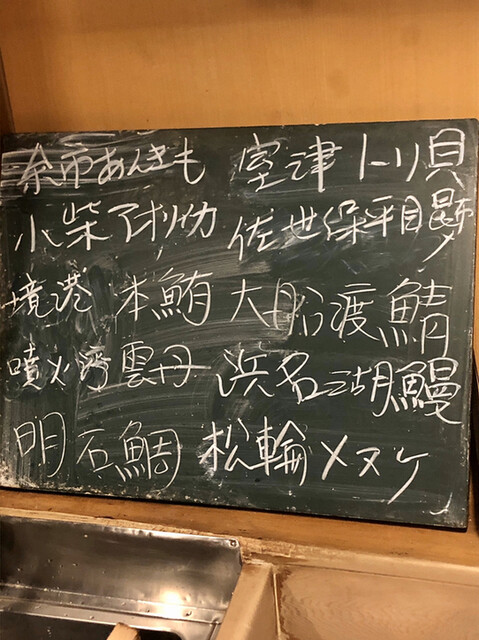 余市あんきも 室津トリ貝
小柴アオリイカ 佐世保平目
境港 本鮪 大船渡鯖
噴火湾雲丹 浜名湖鰻
明石鯛 松輪メヌケ